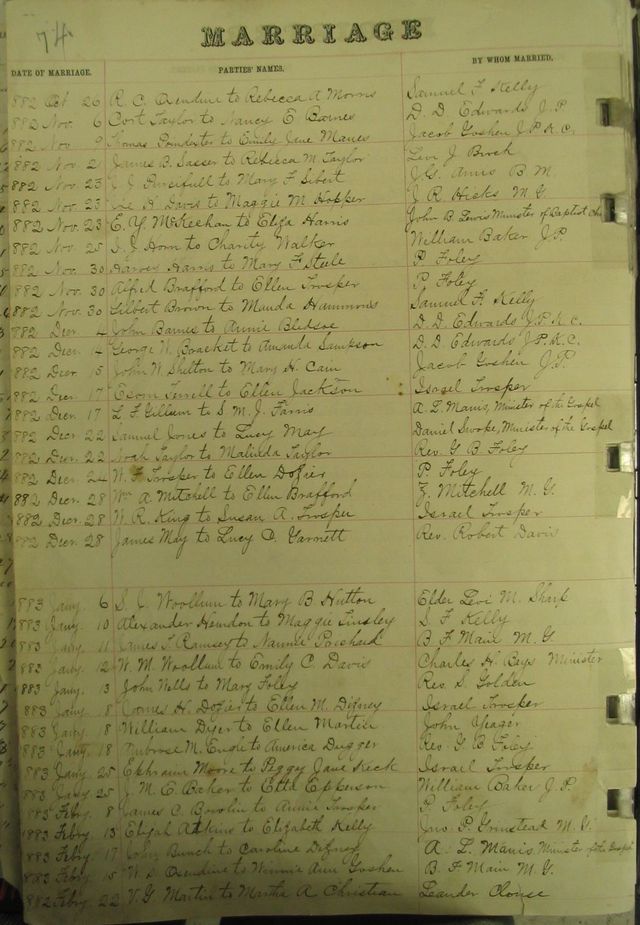 74
MARRIAGE
DATE OF MARRIAGE. PARTIES' NAMES. BY WHOM MARRIED.
882 Oct 26 R. C. Oxendine to Rebecca A Morris Samuel F Kelly
882 Nov. 6 Cort Taylor to Nancy E Barnes D. D. Edwards J.P
Nov. 9 Thomas Poindexter to Emily Jane Maues Jacob Goshen J.P.K.C.
882 Nov. 21 James B. Sasser to Rebecca M. Taylor Levi J Burch
882 Nov. 23 J. J. Pursifull to Mary F Sibert J.G. Amis B M.
882 Nov. 23 H. Davis to Maggie M Hopper J R. Hicks M G.
882 Nov. 23 E. Y. McKeehan to Eliza Harris John B Lewis Minister of Baptist Chu
882 Nov. 25 S. J Horn to Charity Walker William Baker J.P.
882 Nov. 30 Harvey Harris to Mary F Steele P Foley
882 Nov. 30 Alfred Brafford to Ellen Trosper P Foley
882 Nov. 30 Gilbert Brown to Manda Hammons Samuel F. Kelly
882 Decr. 4 John Barnes to Annie Bledsoe D. D. Edwards J.P.K.C.
882 Decr. 14 George W. Bracket to Amanda Sampson D. D. Edwards J.P.K.C.
882 Decr. 15 John W Shilton to Mary H. Cain Jacob Goshen J.P
882 Decr. 17 Esom Terrell to Ellen Jackson Israel Trosper
882 Decr. 17 L F Gillium to S. M. J. Farris A. L. Manis, Minister of the Gospel
882 Decr 22 Samuel Jones to Lucy May Daniel Swope, Minister of the Gospel
882 Decr. 22 Noah Taylor to Malinda Taylor Rev. G B Foley
882 Decr. 24 W. F Trosper to Ellen Dozier P. Foley
882 Decr. 28 Wm A Mitchell to Ellen Brafford Z. Mitchell M. G.
882 Decr. 28 W. R. King to Susan A. Trosper Israel Trosper
882 Decr. 28 James May to Lucy C. Garnett Rev. Robert Davis
883 Jany. 6 S. J. Woollum to Mary B Hutton Elder Levi M. Sharp
883 Jany. 10 Alexander Herndon to Maggie Tinsley S F Kelly
883 Jany 11 James T Ramsey to Nannie Parchard B F Main M. G
883 Jany. 12 W. M. Woollum to Emily C. Davis Charles H Bays Minister
883 Jany. 13 John Wells to Mary Foley Rev. S. Golden
883 Jany. 18 H. Dozier to Ellen M. Disney Israel Trosper
883 Jany 18 William Dizer to Ellen Martin John Yeager
883 Jany. 18 Ambrose M. Engle to America Dugger Rev G B Foley
883 Jany. 25 Ephraim Moore to Peggy Jane Keck Israel Trosper
883 Jany. 25 J. M. E. Baker to Etta Epperson William Baker J P.
883 Febry. 8 James C. Bowlin to Annie Trosper P. Foley
1883 Febry. 13 Elijah Atkins to Elizabeth Kelly Jno. P. Grinstead M. G.
1883 Febry. 17 John Bunch to Caroline Disney A. L. Manis, Minister of the Gospel
883 Febry. 15 W. S. Oxendine to Winnie Ann Goshen B. F Main M G.
882 Febry. 22 V. G. Martin to Martha A Christian Leander Clouse